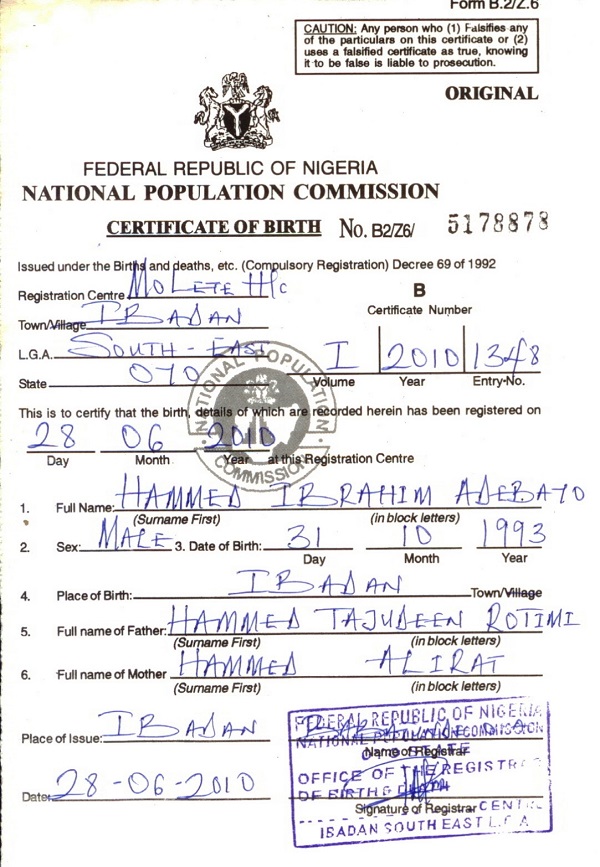 Form B.2/Z.6
CAUTION: Any person who (1) Falsifies any
of the particulars on this certificate or (2)
uses a falsified certificate as true, knowing
it to be false is liable to prosecution.
ORIGINAL
FEDERAL REPUBLIC OF NIGERIA
NATIONAL POPULATION COMMISSION
CERTIFICATE OF BIRTH No. B2/Z6/ 5178878
Issued under the Births and deaths, etc. (Compulsory Registration) Decree 69 of 1992
Registration Centre MOLETE H/C
B
Town/Village IBADAN
Certificate Number
L.G.A. SOUTH-EAST
I 2010 1348
State OYO
Volume Year Entry-No.
NATIONAL POPULATION COMMISSION
This is to certify that the birth, details of which are recorded herein has been registered on
28 06 2010
Day Month Year at this Registration Centre
1. Full Name: HAMMED IBRAHIM ADEBAYO
(Surname First) (in block letters)
2. Sex: MALE 3. Date of Birth: 31 10 1993
Day Month Year
4. Place of Birth: IBADAN Town/Village
5. Full name of Father: HAMMED TAJUDEEN ROTIMI
(Surname First) (in block letters)
6. Full name of Mother HAMMED ALIRAT
(Surname First) (in block letters)
Place of Issue: IBADAN
FEDERAL REPUBLIC OF NIGERIA
NATIONAL POPULATION COMMISSION
Name of Registrar
OFFICE OF THE REGISTRAR
OF BIRTHS
Date: 28-06-2010
Signature of Registrar
IBADAN SOUTH EAST L.G.A